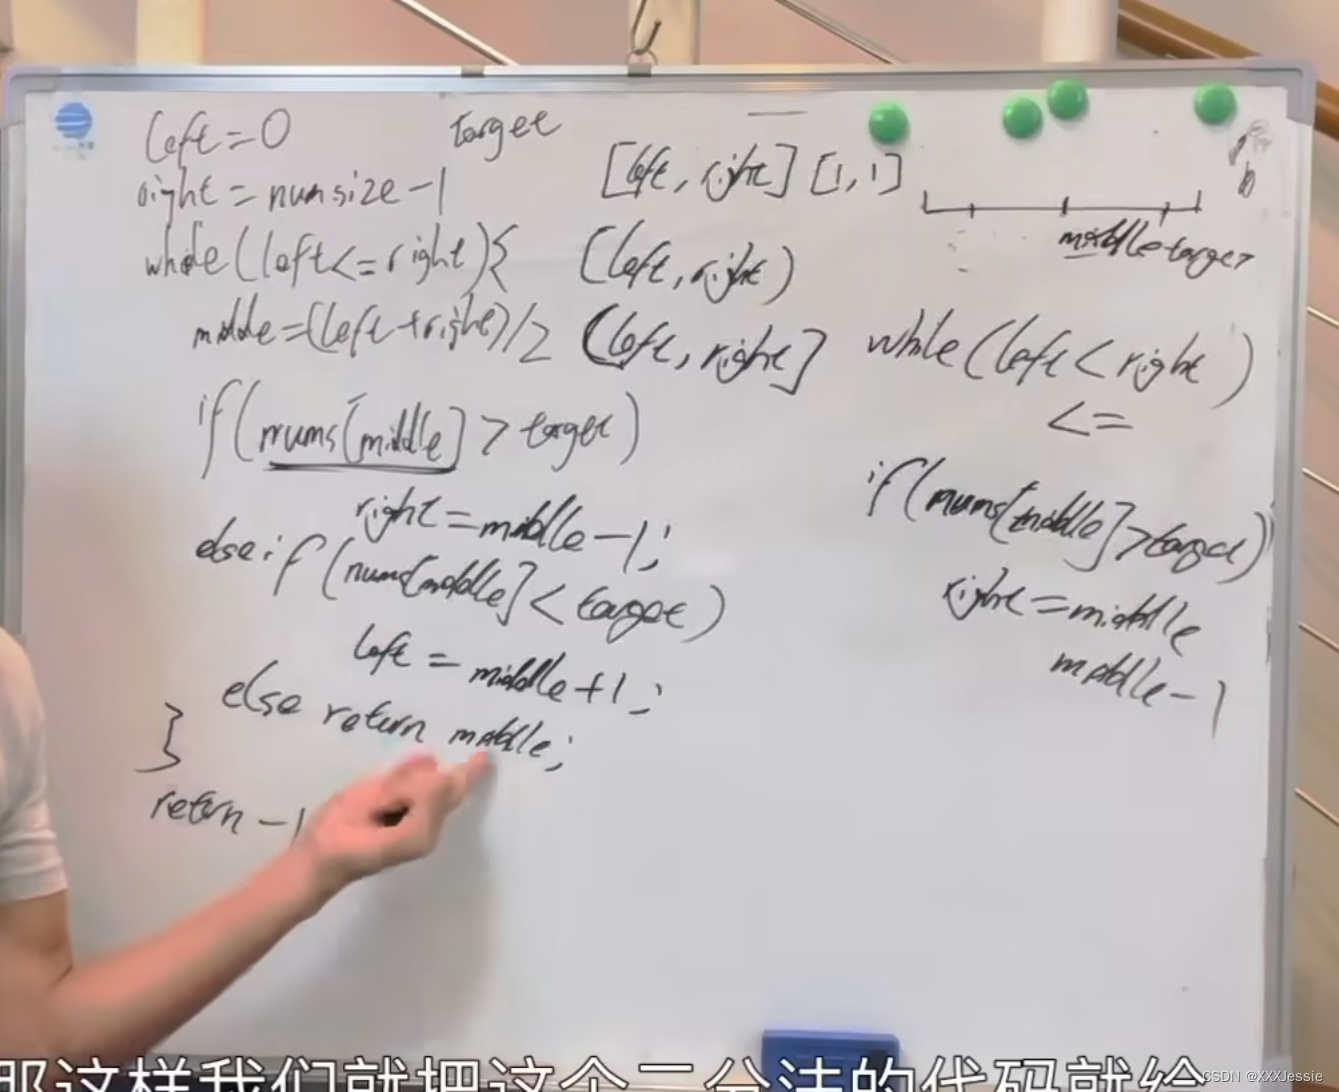 left=0
right=numsize-1
while(left<=right){
middle=(left+right)/2
if(nums[middle]>target)
right=middle-1;
else if(nums[middle]<target)
left=middle+1;
else return middle;
}
return -1
target
[left,right] [1,1]
[left,right)
(left,right]
middle target
while(left<right)
<=
if(nums[middle]>target)
right=middle
middle-1
那这样我们就把这个二分法的代码就给
CSDN @XXXJessie